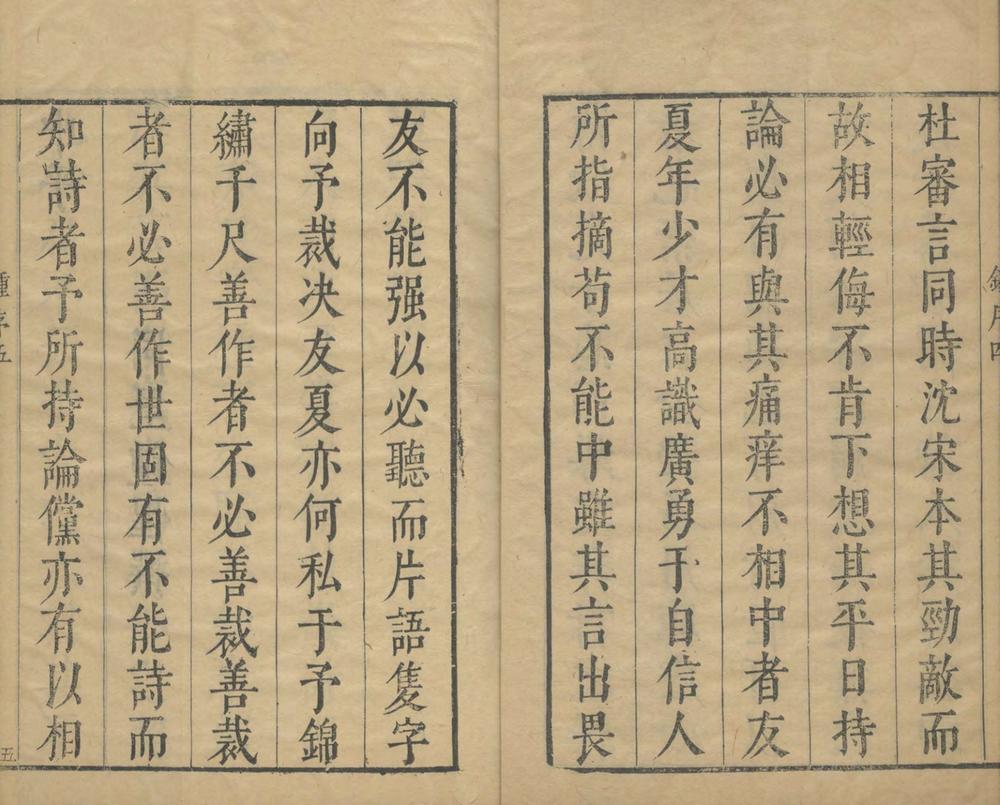 杜審言同時沈宋本其勁敵而
故相輕侮不肯下想其平日持
論必有與其痛痒不相中者友
夏年少才高識廣勇于自信人
所指摘苟不能中雖其言出畏
友不能强以必聽而片語隻字
向予裁决友夏亦何私于予錦
繡千尺善作者不必善裁善裁
者不必善作世固有不能詩而
知詩者予所持論儻亦有以相
五